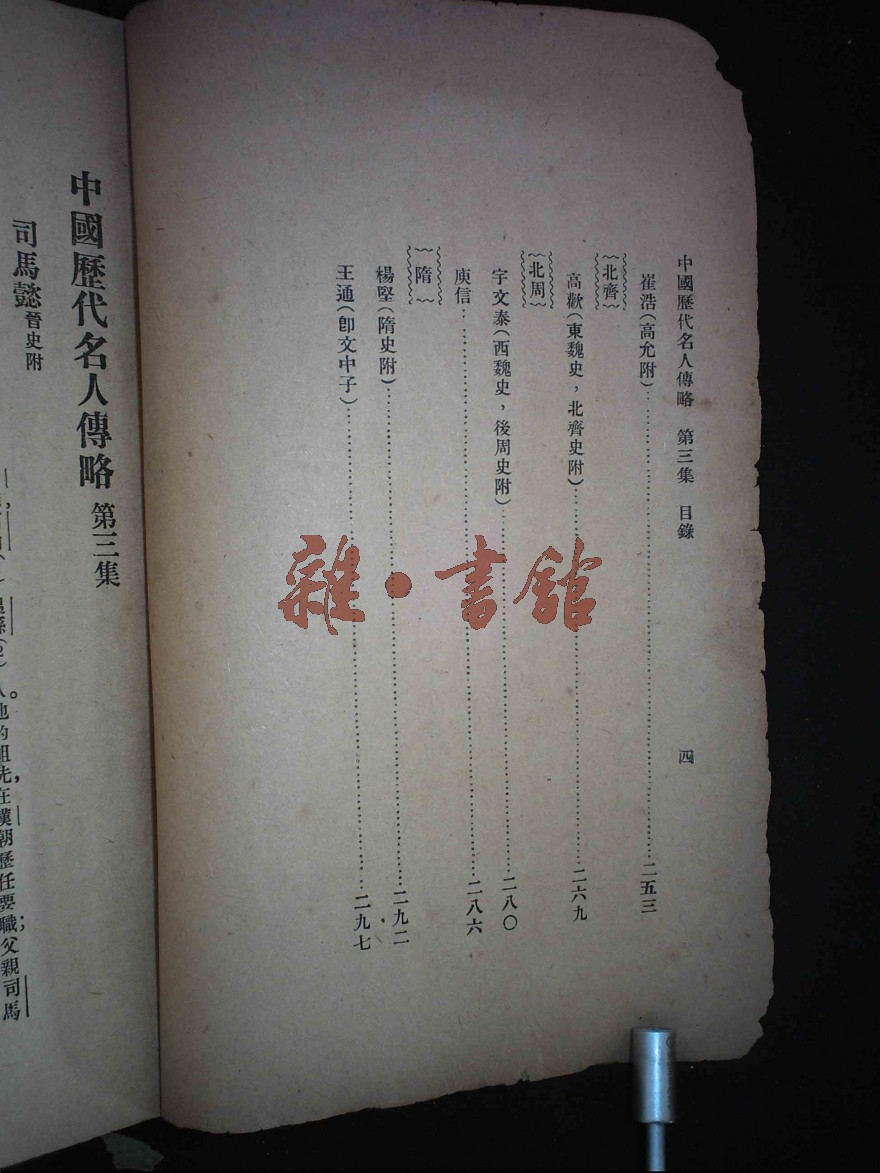 中國歷代名人傳略　第三集　目錄　四
崔浩(高允附)……二五三
北齊
高歡(東魏史，北齊史附)……二六九
北周
宇文泰(西魏史，後周史附)……二八〇
庾信……二八六
隋
楊堅(隋史附)……二九二
王通(卽文中子)……二九七
中國歷代名人傳略 第三集
司馬懿 晉史附
人。他的祖先，在漢朝歷任要職；父親司馬
雜·書館